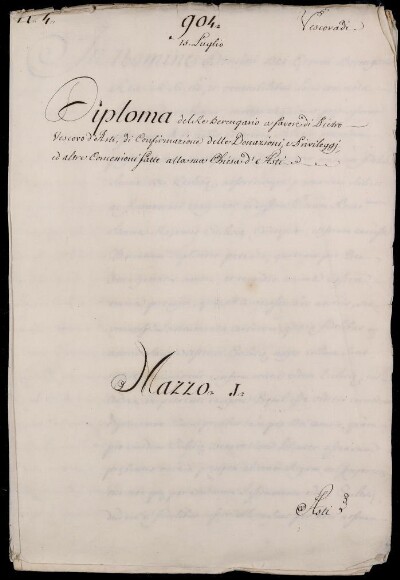 904.
Vescovadi
15. Luglio
Diploma del Re Berengario a favore di Pietro
Vescovo d'Asti, di Confirmazione delle Donazioni, e Privileggi,
ed altre Concessioni fatte alla sua Chiesa d'Asti
Mazzo. 1.
Asti